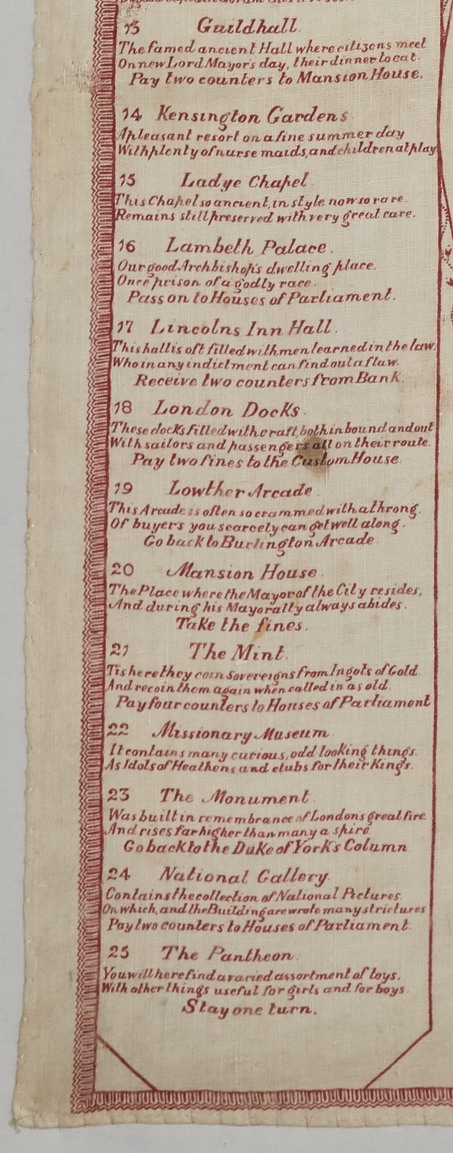 13 Guildhall.
The famed ancient Hall where citizens meet
On new Lord Mayor's day, their dinner to eat.
Pay two counters to Mansion House.
14 Kensington Gardens
A pleasant resort on a fine summer day
With plenty of nurse maids, and children at play
15 Ladye Chapel.
This Chapel so ancient, in style now so rare
Remains still preserved with very great care.
16 Lambeth Palace.
Our good Archbishop's dwelling place.
Once prison of a godly race.
Pass on to Houses of Parliament.
17 Lincolns Inn Hall.
This hall is oft filled with men learned in the law.
Who in any indictment can find out a flaw.
Receive two counters from Bank.
18 London Docks.
These docks filled with craft, both in bound and out
With sailors and passengers all on their route.
Pay two fines to the Custom House
19 Lowther Arcade.
This Arcade is often so crammed with a throng.
Of buyers you scarcely can get well along.
Go back to Burlington Arcade
20 Mansion House.
The Place where the Mayor of the City resides,
And during his Mayoralty always abides.
Take the fines.
21 The Mint.
Tis here they coin Sovereigns from Ingots of Gold.
And recoin them again when called in as old.
Pay four counters to Houses of Parliament
22 Missionary Museum.
It contains many curious, odd looking things.
As Idols of Heathens and clubs for their Kings.
23 The Monument.
Was built in remembrance of Londons great fire.
And rises far higher than many a spire
Go back to the Duke of York's Column
24 National Gallery.
Contains the collection of National Pictures.
On which, and the Building are wrote many strictures
Pay two counters to Houses of Parliament.
25 The Pantheon.
You will here find a varied assortment of toys.
With other things useful for girls and for boys.
Stay one turn.